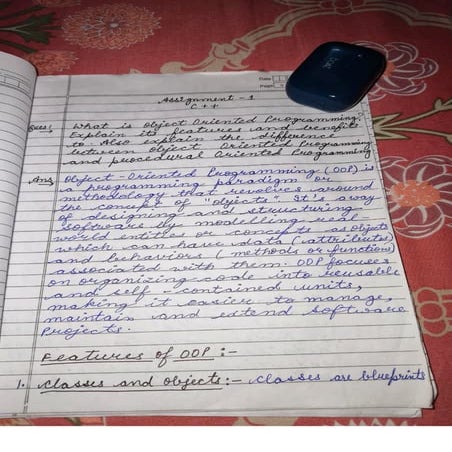 Date
Page
Assignment - 1
C++
Ques: What is Object Oriented Programming?
Explain its features and benefits
to Also explain the difference
between Object Oriented Programming
and procedural Oriented Programming
Ans Object-Oriented Programming (OOP) is
a programming paradigm or
methodology that revolves around
the concept of "objects". It's a way
of designing and structuring
software by modelling real-
world entities or concepts as objects
which can have data (attributes)
and behaviors (methods or functions)
associated with them. OOP focuses
on organizing code into reusable
and self-contained units,
making it easier to manage,
maintain and extend software
Projects.
Features of OOP :-
1. Classes and Objects :- Classes are blueprints